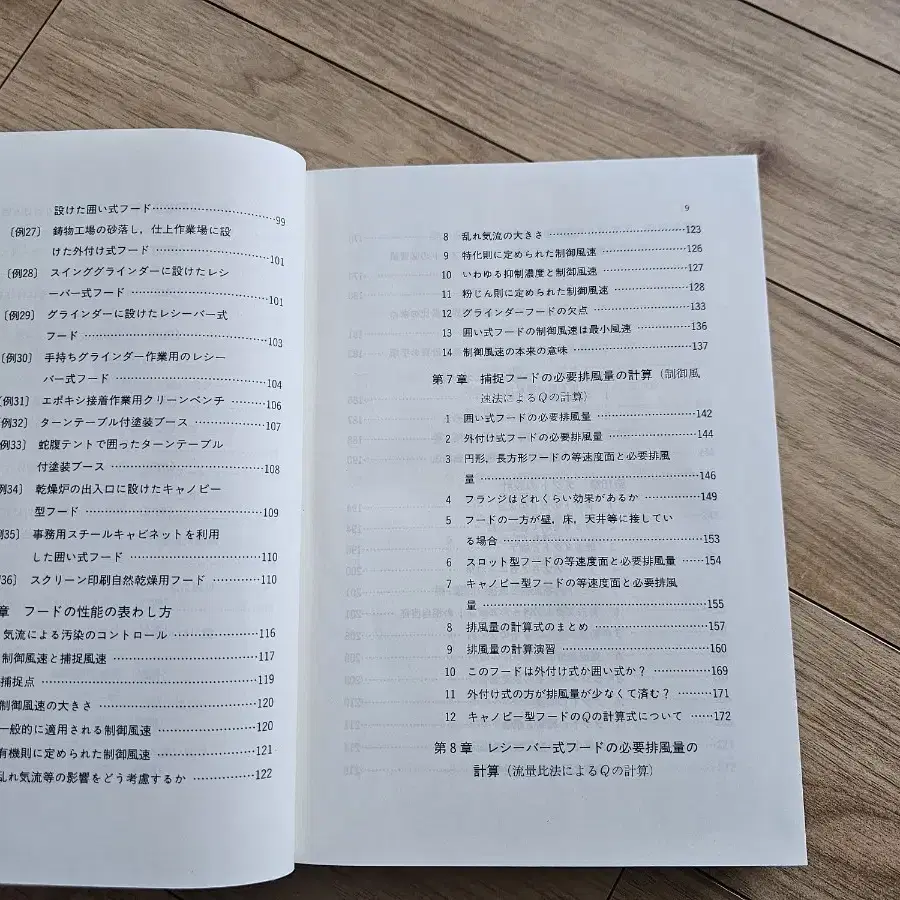 設けた囲い式フード…………99
〔例27〕 鋳物工場の砂落し，仕上作業場に設
けた外付け式フード…………101
〔例28〕 スインググラインダーに設けたレシ
ーバー式フード…………101
〔例29〕 グラインダーに設けたレシーバー式
フード…………103
〔例30〕 手持ちグラインダー作業用のレシー
バー式フード…………104
〔例31〕 エポキシ接着作業用クリーンベンチ…………106
例32〕 ターンテーブル付塗装ブース…………107
例33〕 蛇腹テントで囲ったターンテーブル
付塗装ブース…………108
例34〕 乾燥炉の出入口に設けたキャノピー
型フード…………109
例35〕 事務用スチールキャビネットを利用
した囲い式フード…………110
36〕 スクリーン印刷自然乾燥用フード…………110
章 フードの性能の表わし方
気流による汚染のコントロール…………116
制御風速と捕捉風速…………117
捕捉点…………119
制御風速の大きさ…………120
一般的に適用される制御風速…………120
有機則に定められた制御風速…………121
乱れ気流等の影響をどう考慮するか…………122
9
8 乱れ気流の大きさ…………123
9 特化則に定められた制御風速…………126
10 いわゆる抑制濃度と制御風速…………127
11 粉じん則に定められた制御風速…………128
12 グラインダーフードの欠点…………133
13 囲い式フードの制御風速は最小風速…………136
14 制御風速の本来の意味…………137
第7章 捕捉フードの必要排風量の計算（制御風
速法によるQの計算）
1 囲い式フードの必要排風量…………142
2 外付け式フードの必要排風量…………144
3 円形，長方形フードの等速度面と必要排風
量…………146
4 フランジはどれくらい効果があるか…………149
5 フードの一方が壁，床，天井等に接してい
る場合…………153
6 スロット型フードの等速度面と必要排風量……154
7 キャノピー型フードの等速度面と必要排風
量…………155
8 排風量の計算式のまとめ…………157
9 排風量の計算演習…………160
10 このフードは外付け式か囲い式か？…………169
11 外付け式の方が排風量が少なくて済む？…………171
12 キャノピー型フードのQの計算式について……172
第8章 レシーバー式フードの必要排風量の
計算（流量比法によるQの計算）